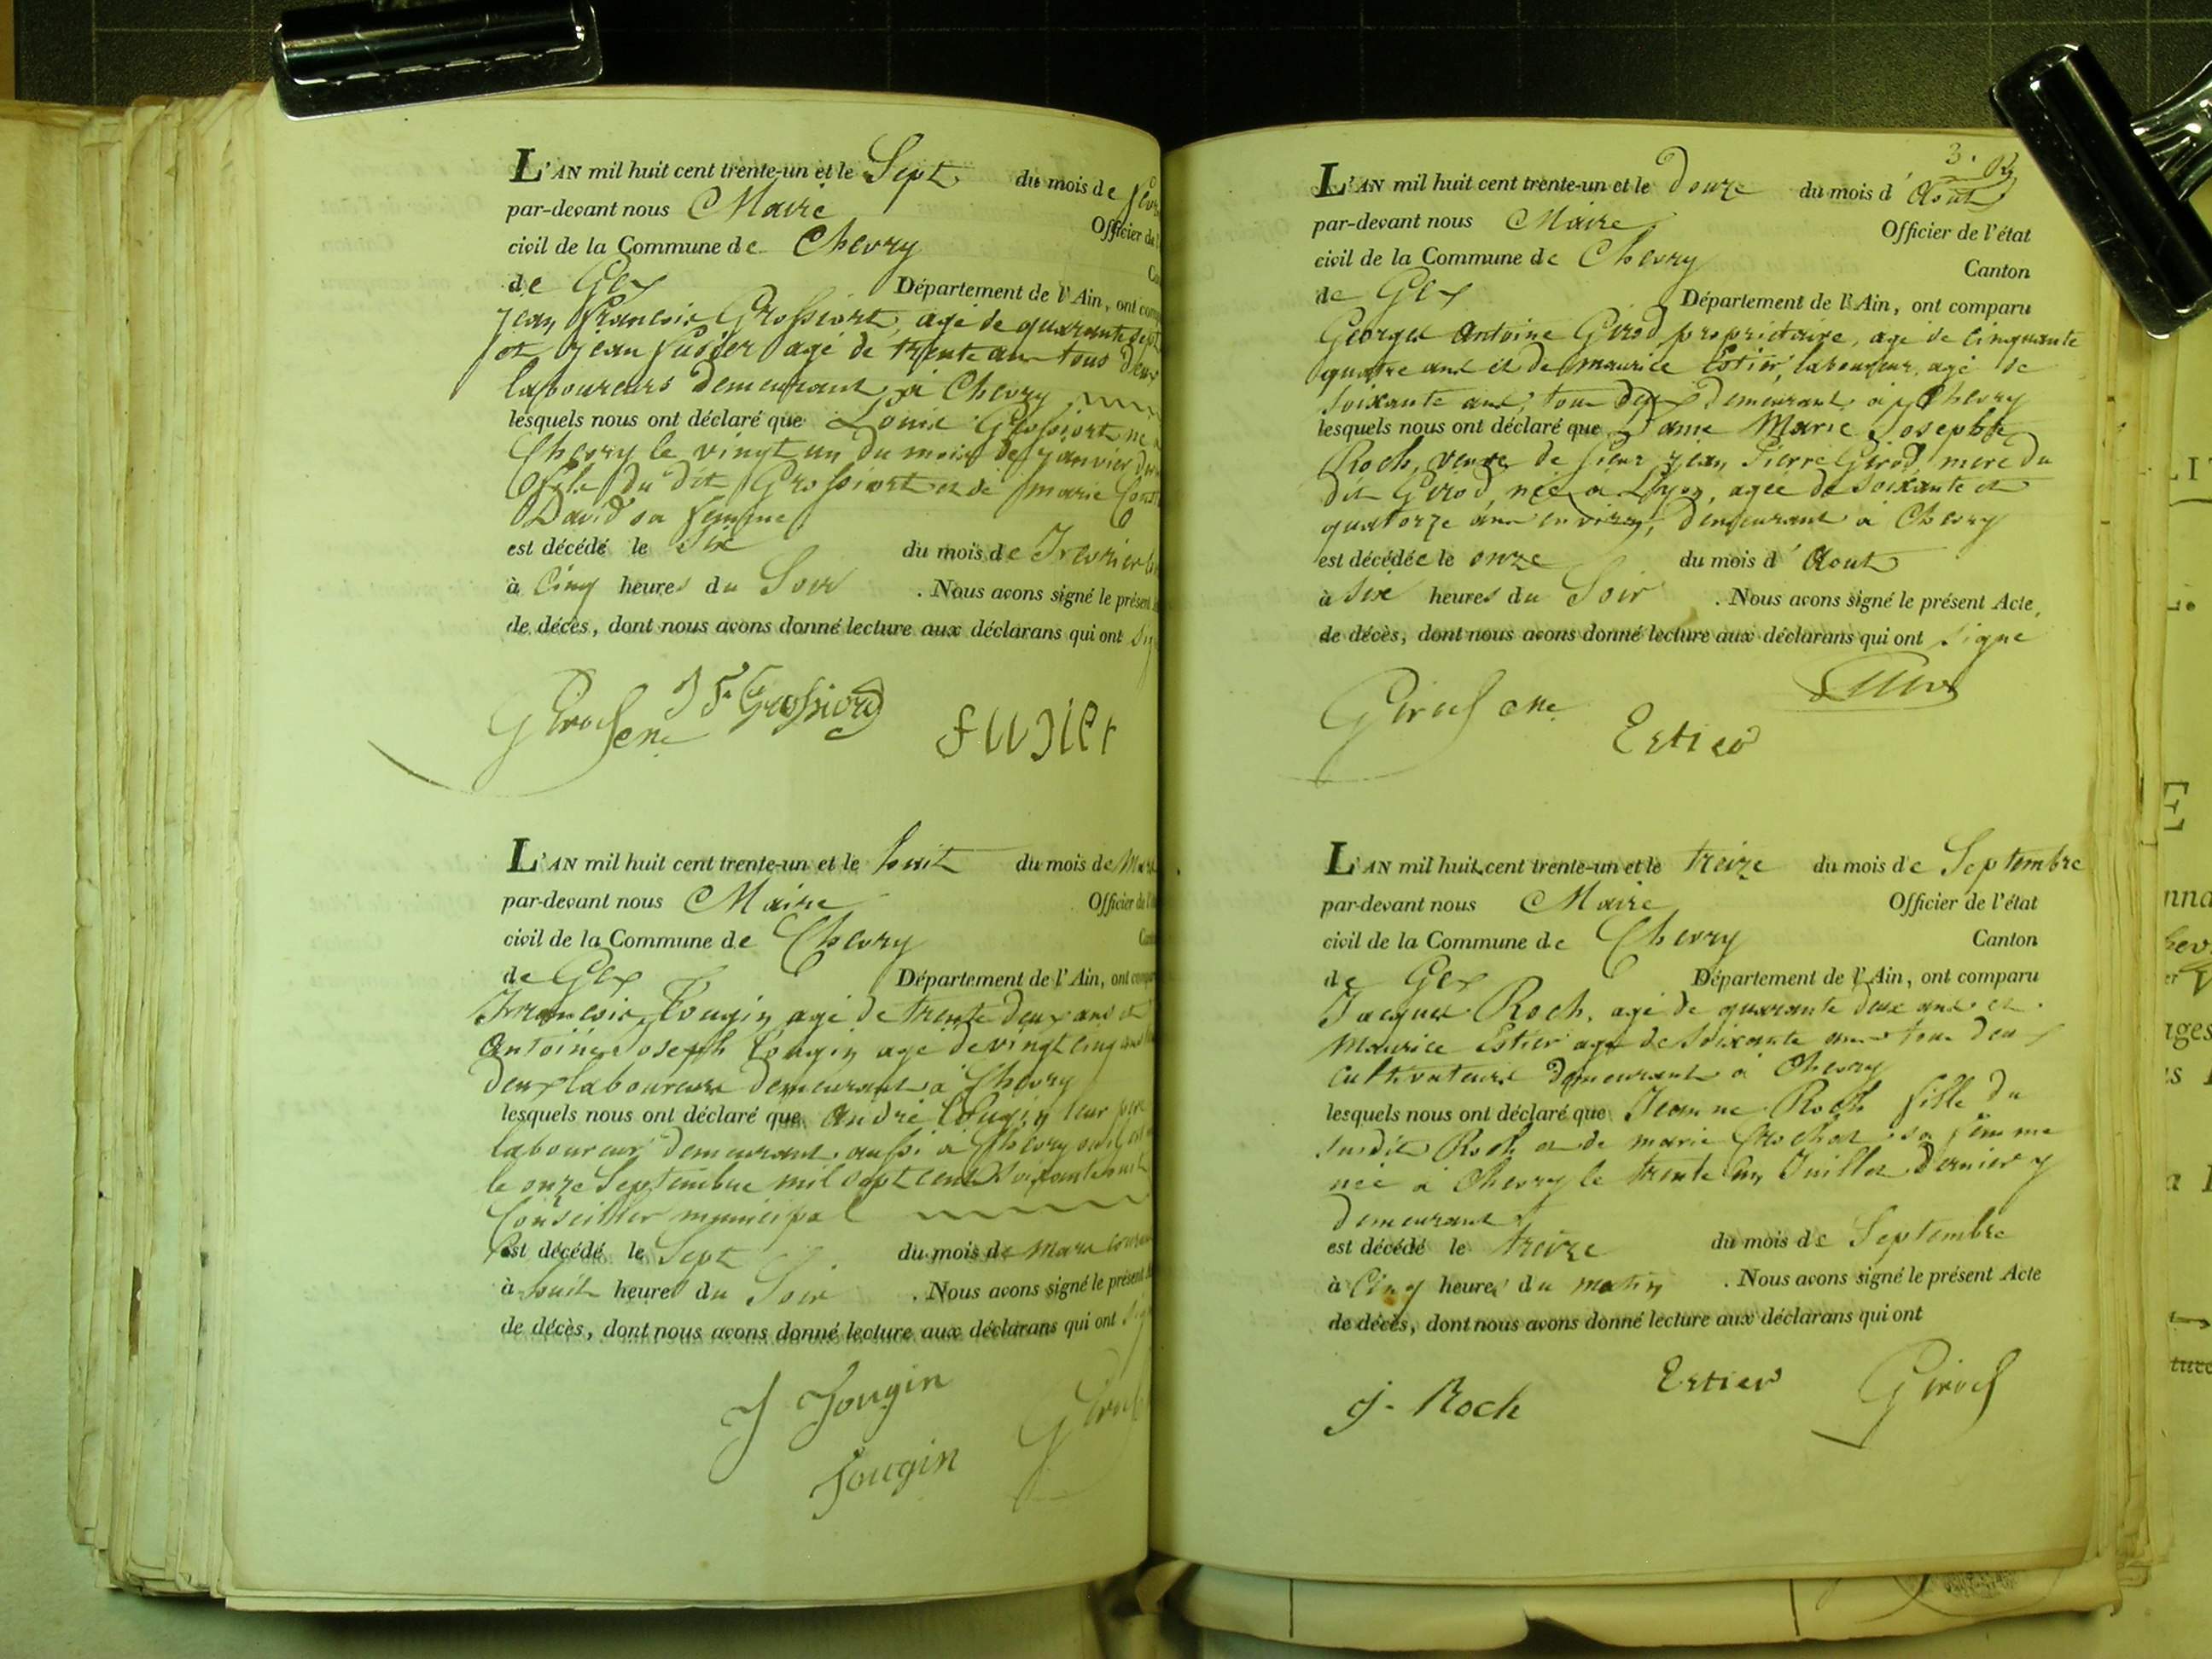 L'AN mil huit cent trente-un et le Sept du mois de
par-devant nous Maire Officier de
civil de la Commune de Chevry
de Gex Département de l'Ain, ont
jean françois Grossiort, agé de quarante sept
et jean fusier agé de trente ans tous deux
laboureurs demeurant à Chevry
lesquels nous ont déclaré que Louis Grossiort né
Chevry le vingt un du mois de janvier
fils du dit Grossiort et de marie
David sa femme
est décédé le Six du mois de Fevrier
à Cinq heures du Soir . Nous avons signé le présent
de décès, dont nous avons donné lecture aux déclarans qui ont
J F Grossiord
Girod
fusier
L'AN mil huit cent trente-un et le huit du mois de
par-devant nous Maire Officier
civil de la Commune de Chevry
de Gex Département de l'Ain, ont
François Tougin agé de trente deux ans et
Antoine Joseph Tougin agé de vingt cinq ans
deux laboureurs demeurant à Chevry
lesquels nous ont déclaré que André Tougin leur père
laboureur demeurant aussi à Chevry
le onze Septembre mil sept cent soixante huit
Conseiller municipal
est décédé le Sept du mois de mars courant
à huit heures du Soir . Nous avons signé le présent
de décès, dont nous avons donné lecture aux déclarans qui ont
J Jougin
Jougin
3.
L'AN mil huit cent trente-un et le douze du mois d'Aout
par-devant nous Maire Officier de l'état
civil de la Commune de Chevry Canton
de Gex Département de l'Ain, ont comparu
Georges Antoine Girod propriétaire, agé de cinquante
quatre ans et de maurice Estier, laboureur, agé de
soixante ans, tous deux demeurant à Chevry
lesquels nous ont déclaré que Dame Marie Josephte
Roch, veuve de sieur jean Pierre Girod, mere du
dit Girod, née à Lyon, agée de soixante et
quatorze ans environ, demeurant à Chevry
est décédée le onze du mois d'Aout
à six heures du Soir . Nous avons signé le présent Acte,
de décès, dont nous avons donné lecture aux déclarans qui ont signé
Girod
Estier
L'AN mil huit cent trente-un et le treize du mois de Septembre
par-devant nous Maire Officier de l'état
civil de la Commune de Chevry Canton
de Gex Département de l'Ain, ont comparu
Jacques Roch, agé de quarante deux ans et
Maurice Estier agé de soixante ans tous deux
cultivateurs demeurant à Chevry
lesquels nous ont déclaré que Jeanne Roch fille du
susdit Roch et de marie Crochat sa femme
née à Chevry le trente un Juillet dernier y
demeurant
est décédé le treize du mois de Septembre
à Cinq heures du matin . Nous avons signé le présent Acte
de décès, dont nous avons donné lecture aux déclarans qui ont
j. Roch
Estier
Girod